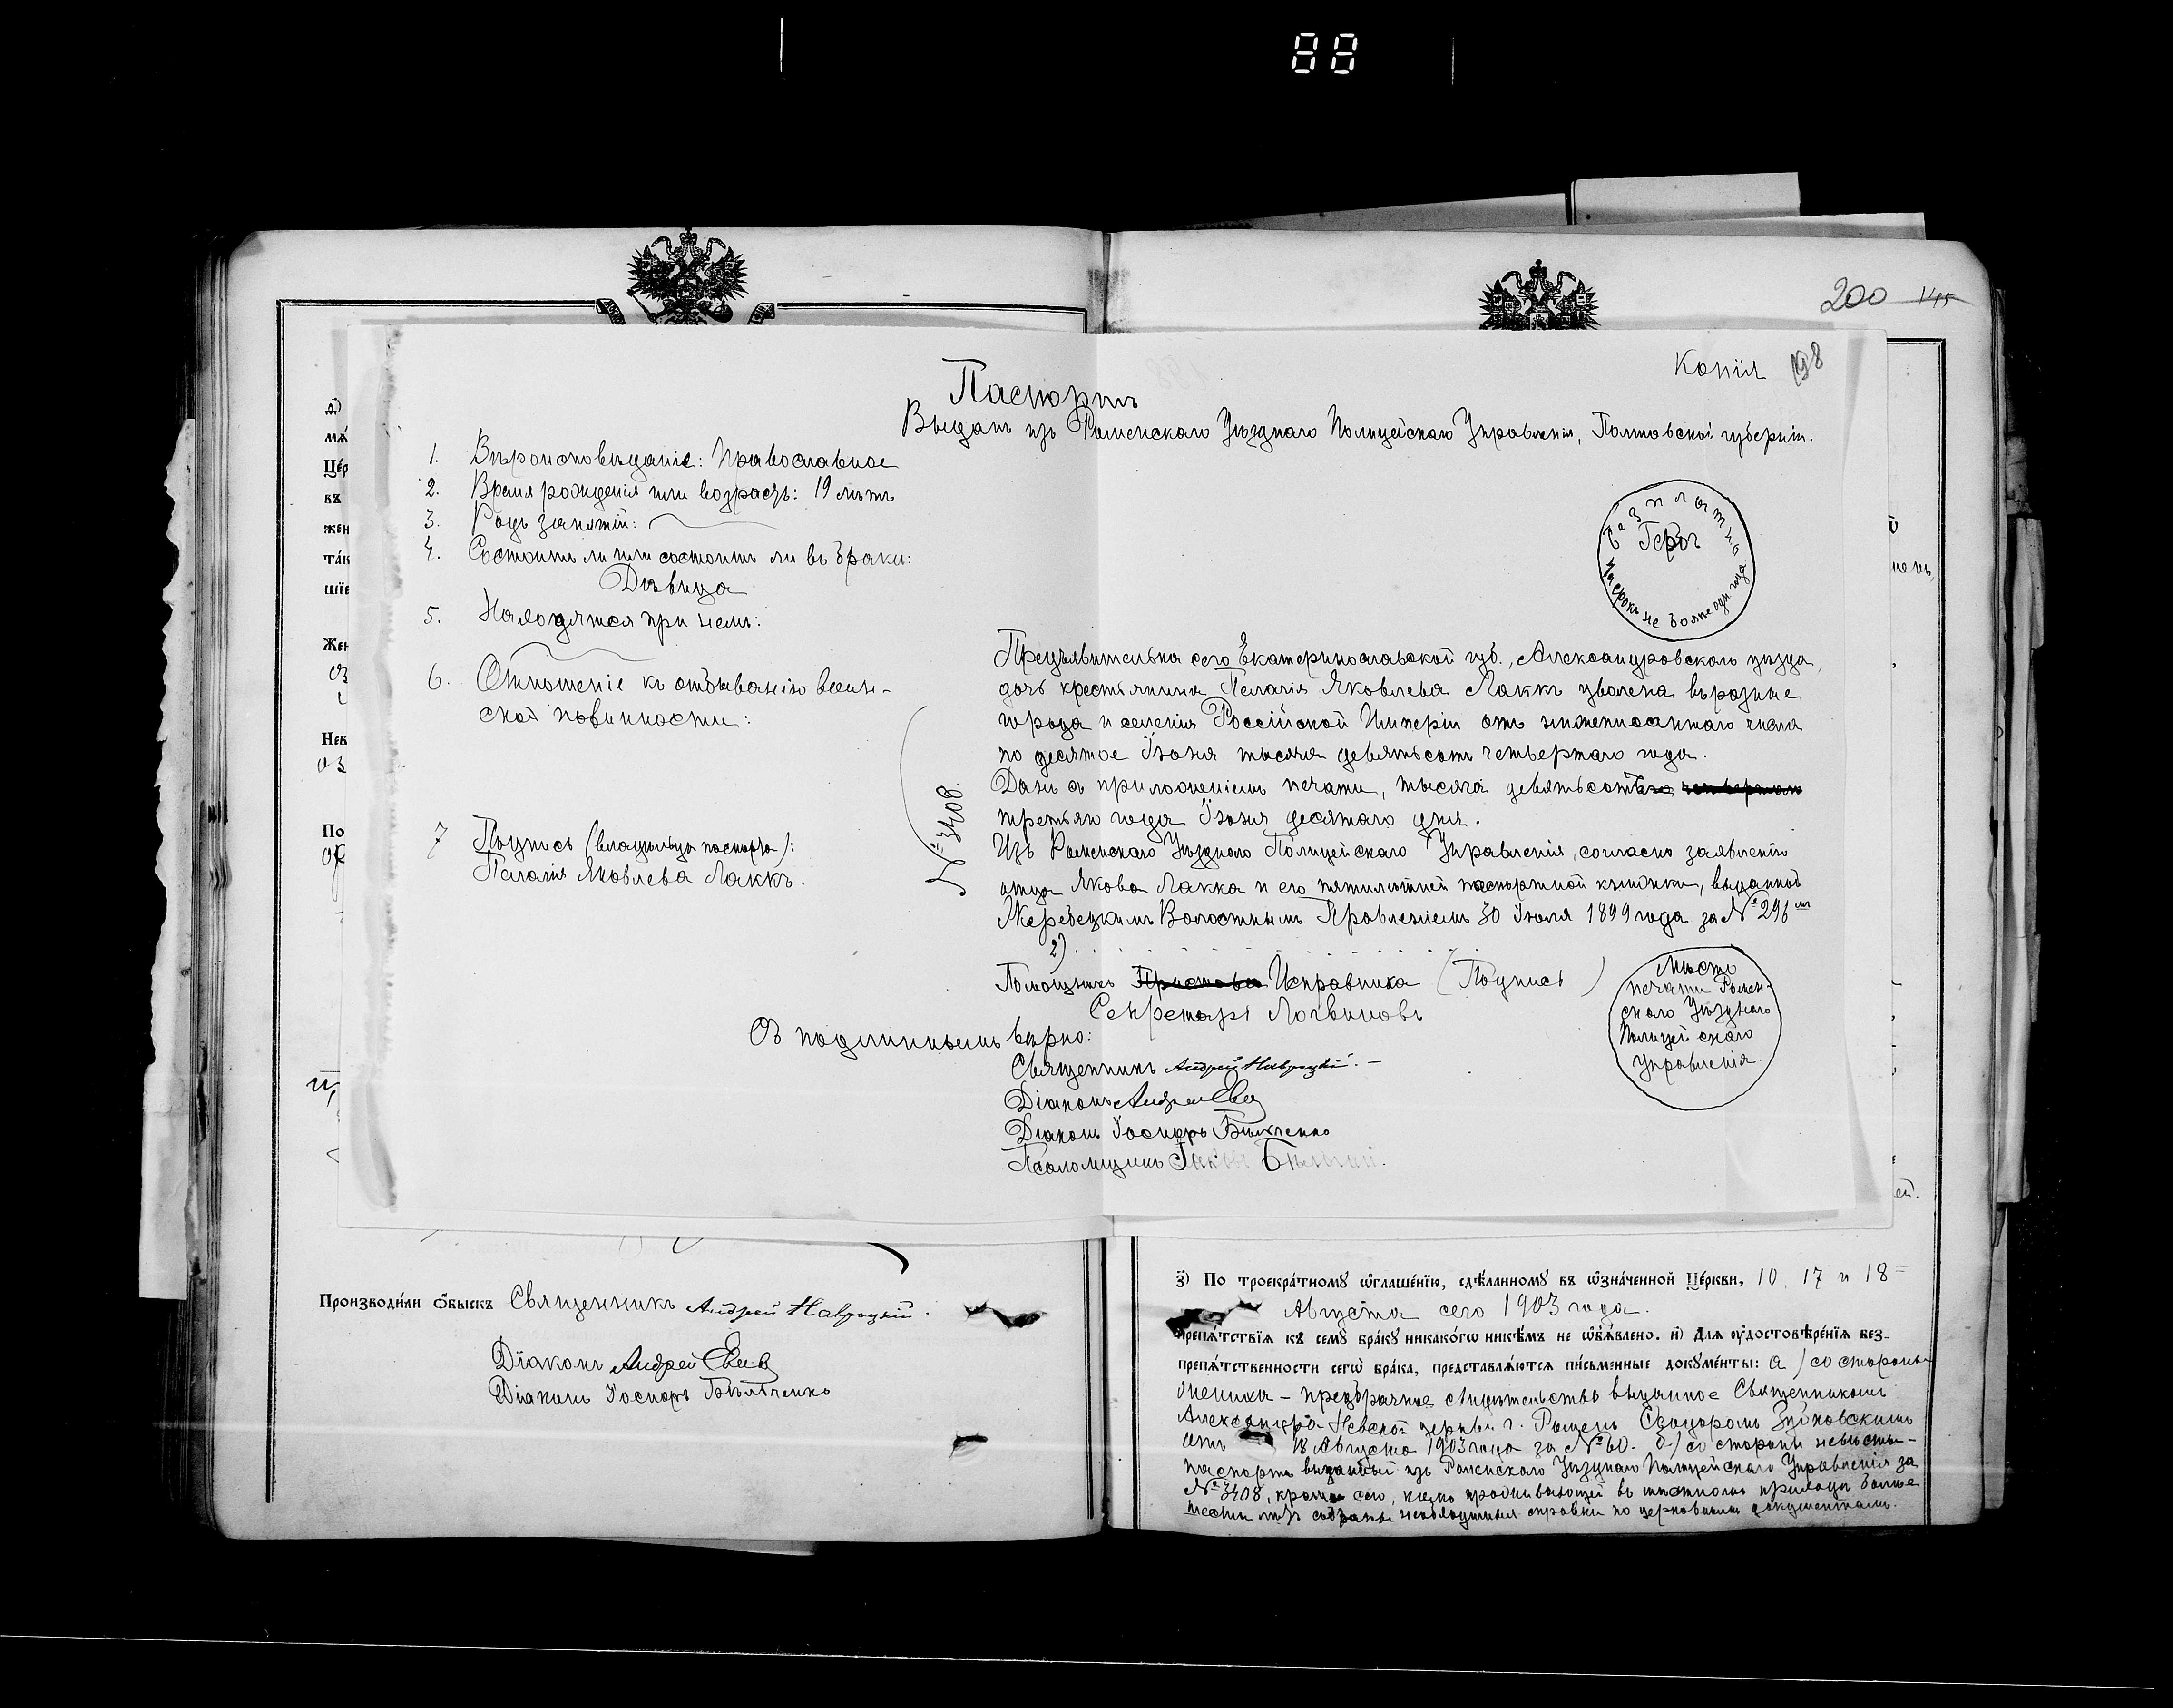 88
200 145
Копія 198
Паспортъ
Выданъ изъ Роменскаго Уѣзднаго Полицейскаго Управленія, Полтавской губерніи.
1. Вѣроисповѣданіе: Православное
2. Время рожденія или возрастъ: 19 лѣтъ
3. Родъ занятій:
4. Состоитъ ли или состоитъ ли въ бракѣ:
Дѣвица
5. Находятся при немъ:
6. Отношеніе къ отбыванію воин-
ской повинности:
7 Подпись (владѣльца паспорта):
Пелагія Яковлева Лаккъ.
Безплатно
Гербъ
На срокъ не болѣе одн. года
Предъявительница сего Екатеринославской губ., Александровскаго уѣзда,
дочь крестьянина Пелагія Яковлева Лаккъ уволена въ разные
города и селенія Россійской Имперіи отъ нижеписаннаго числа
по десятое Іюня тысяча девятьсотъ четвертаго года.
Данъ съ приложеніемъ печати, тысяча девятьсотъ
третьяго года Іюня десятаго дня.
№ 3408.
Изъ Роменскаго Уѣзднаго Полицейскаго Управленія, согласно заявленію
отца Якова Лакка и его пятилѣтней паспортной книжки, выданной
Жеребецкимъ Волостнымъ Правленіемъ 30 Іюля 1899 года за № 296
2)
Помощникъ Пристава Исправника (Подпись)
Секретарь Логвиновъ
Мѣсто
печати Ромен-
скаго Уѣзднаго
Полицейскаго
Управленія.
Съ подлиннымъ вѣрно:
Священникъ Андрей Навроцкій. –
Діаконъ Андрей
Діаконъ Іосифъ
Псаломщикъ
Производи́ли ѻбыскъ Священникъ Андрей Навроцкій.
Діаконъ Андрей
Діаконъ Іосифъ
з҃) По троекра́тному ѡглаше́нїю, сдѣ́ланному въ ѡзна́ченной Це́ркви, 10, 17 и 18
Августа сего 1903 года.
препѧ́тствїѧ къ сему бра́ку никако́гѡ никѣ́мъ не ѡб̾ѧ́влено. и҃) Для ᲂу҆достовѣре́нїѧ без-
препѧ́тственности сегѡ̀ бра́ка, представлѧ́ютсѧ пи́сьменные докуме́нты: а) со стороны
жениха – предбрачное свидѣтельство выданное Священникомъ
Александро-Невской церкви г. Роменъ Ѳеодоромъ Зубковскимъ
отъ 18 Августа 1903 года за № 60. б) со стороны невѣсты –
паспортъ выданный изъ Роменскаго Уѣзднаго Полицейскаго Управленія за
№ 3408, кромѣ сего, какъ проживающей въ приходѣ болѣе
шести лѣтъ необходимыя справки по церковнымъ документамъ.